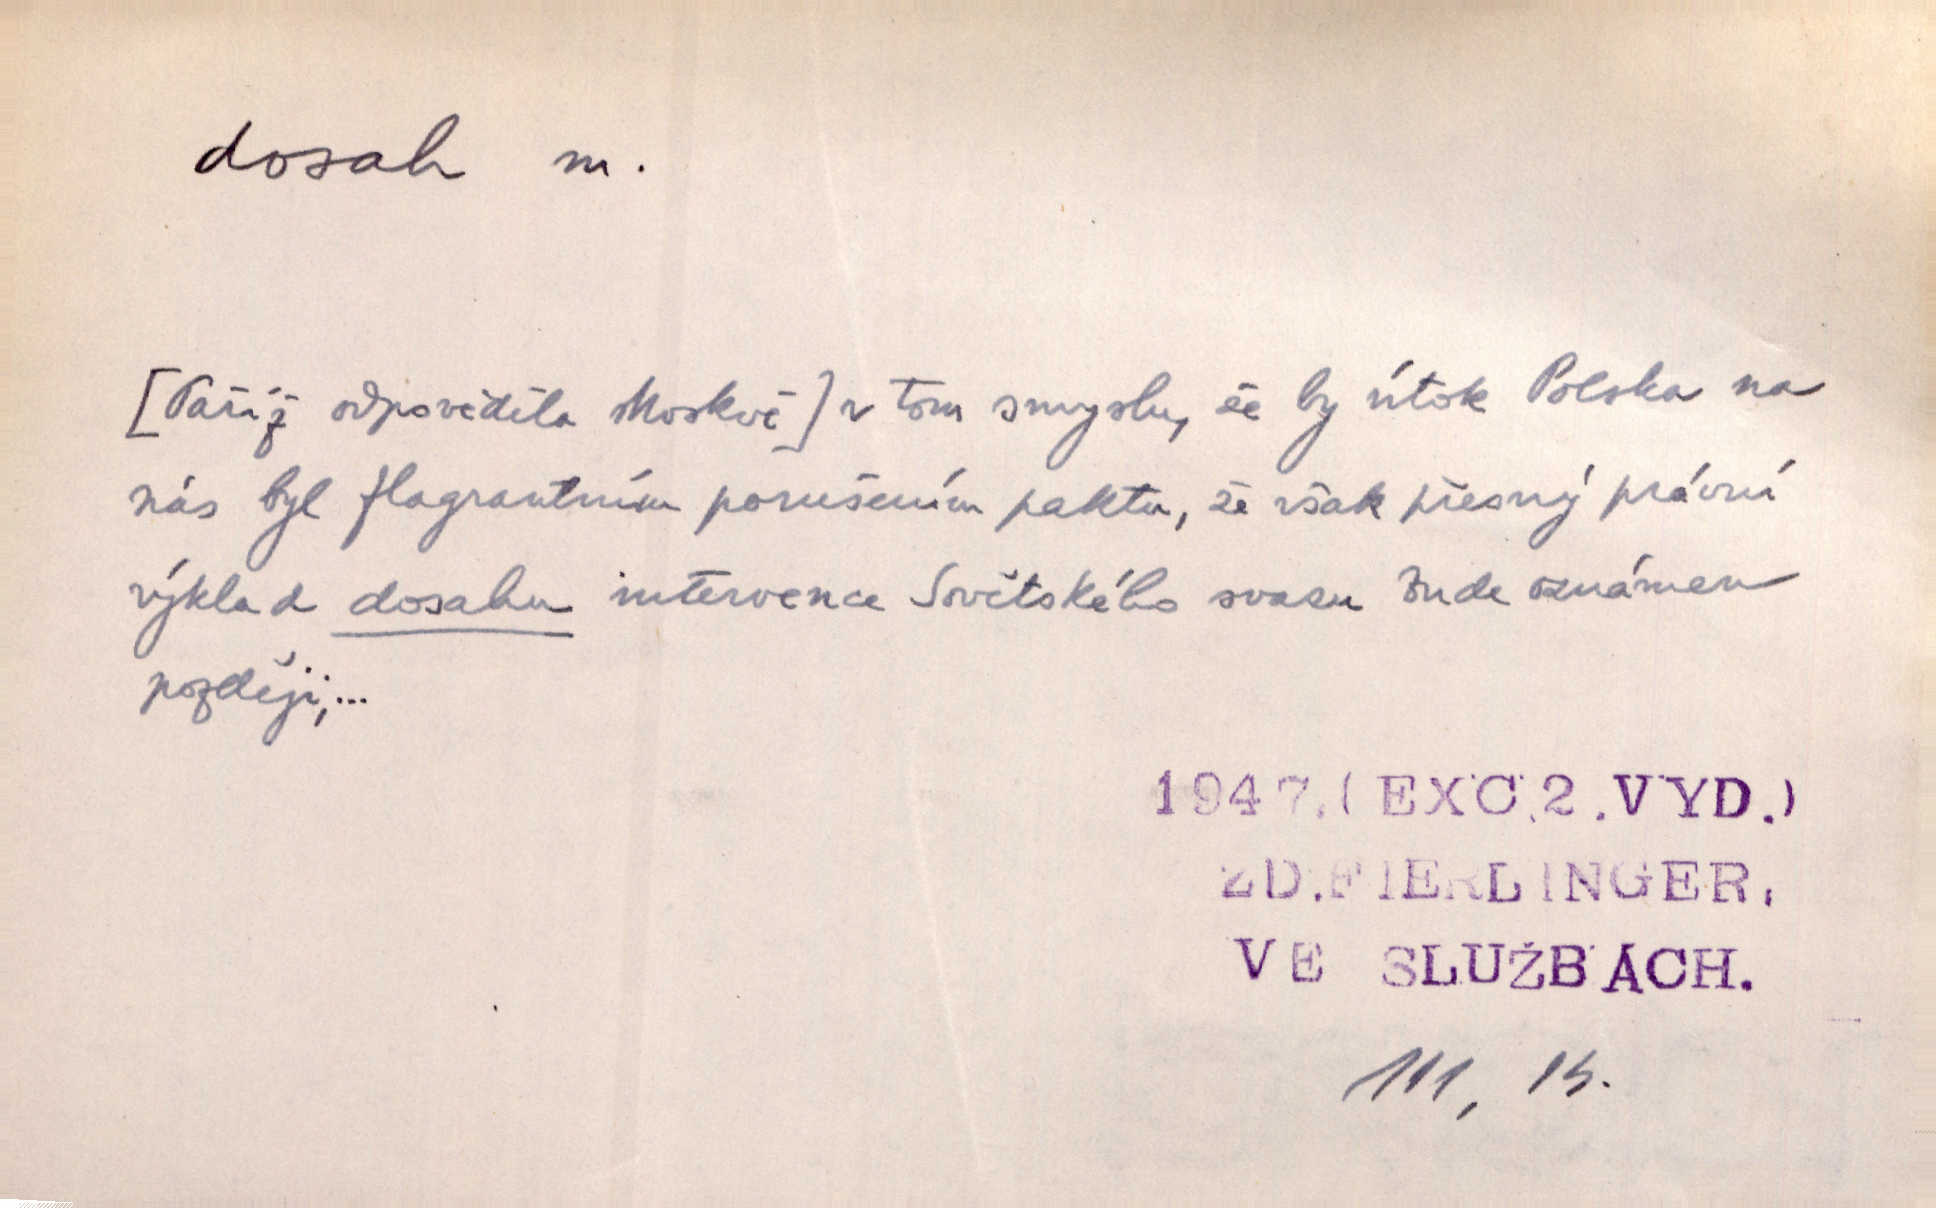 dosah m.
[Paříž odpověděla Moskvě] v tom smyslu, že by útok Polska na
nás byl flagrantním porušením paktu, že však přesný právní
výklad dosahu intervence Sovětského svazu bude oznámen
později,...
1947.(EXC.2.VYD.)
ZD.FIERLINGER,
VE SLUŽBÁCH.